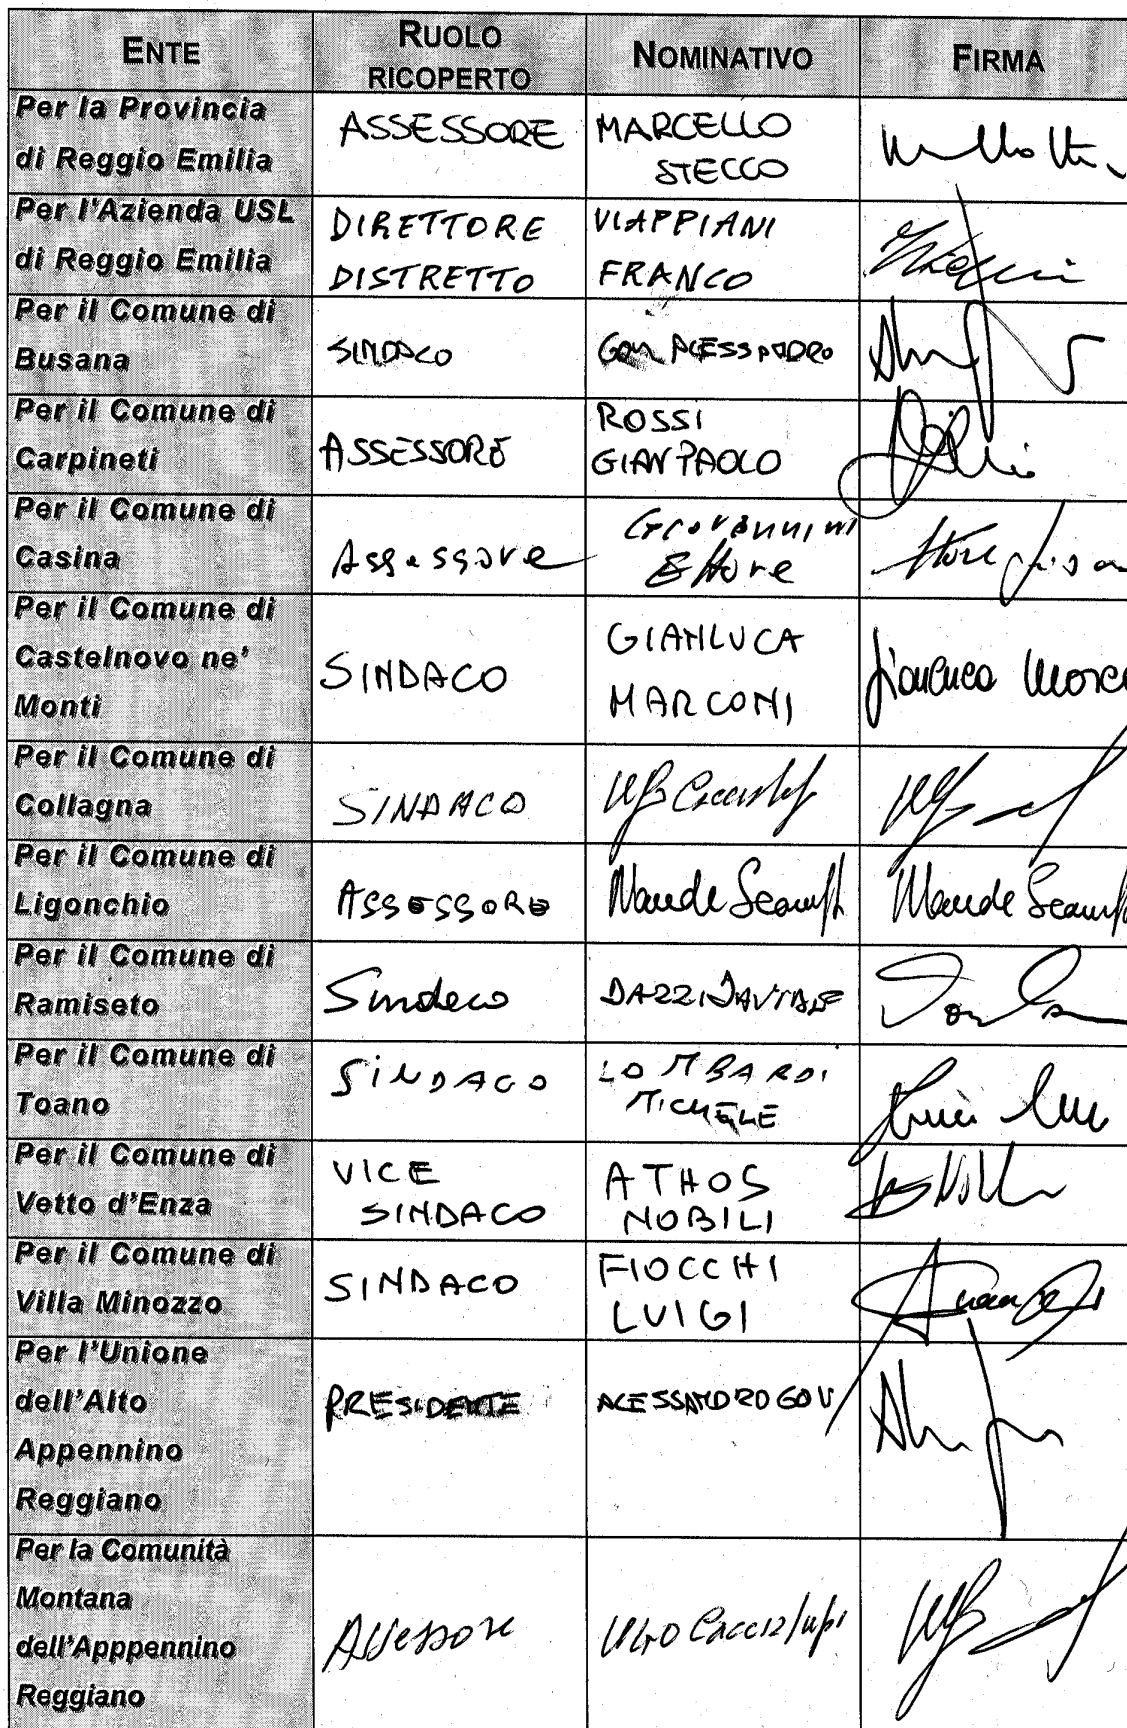 ENTE
RUOLO
RICOPERTO
NOMINATIVO
FIRMA
Per la Provincia
di Reggio Emilia
ASSESSORE
MARCELLO
STECCO
Per l'Azienda USL
di Reggio Emilia
DIRETTORE
DISTRETTO
VIAPPIANI
FRANCO
Per il Comune di
Busana
SINDACO
ALESSANDRO
Per il Comune di
Carpineti
ASSESSORE
ROSSI
GIAN PAOLO
Per il Comune di
Casina
Assessore
Giovannini
Ettore
Ettore
Per il Comune di
Castelnovo ne'
Monti
SINDACO
GIANLUCA
MARCONI
Gianluca Marco
Per il Comune di
Collagna
SINDACO
Per il Comune di
Ligonchio
ASSESSORE
Per il Comune di
Ramiseto
Sindaco
DAZZI DAVIDE
Per il Comune di
Toano
SINDACO
LOMBARDI
MICHELE
Per il Comune di
Vetto d'Enza
VICE
SINDACO
ATHOS
NOBILI
Per il Comune di
Villa Minozzo
SINDACO
FIOCCHI
LUIGI
Per l'Unione
dell'Alto
Appennino
Reggiano
PRESIDENTE
ALESSANDRO GOV
Per la Comunità
Montana
dell'Apppennino
Reggiano
Assessore
UGO Caccialupi